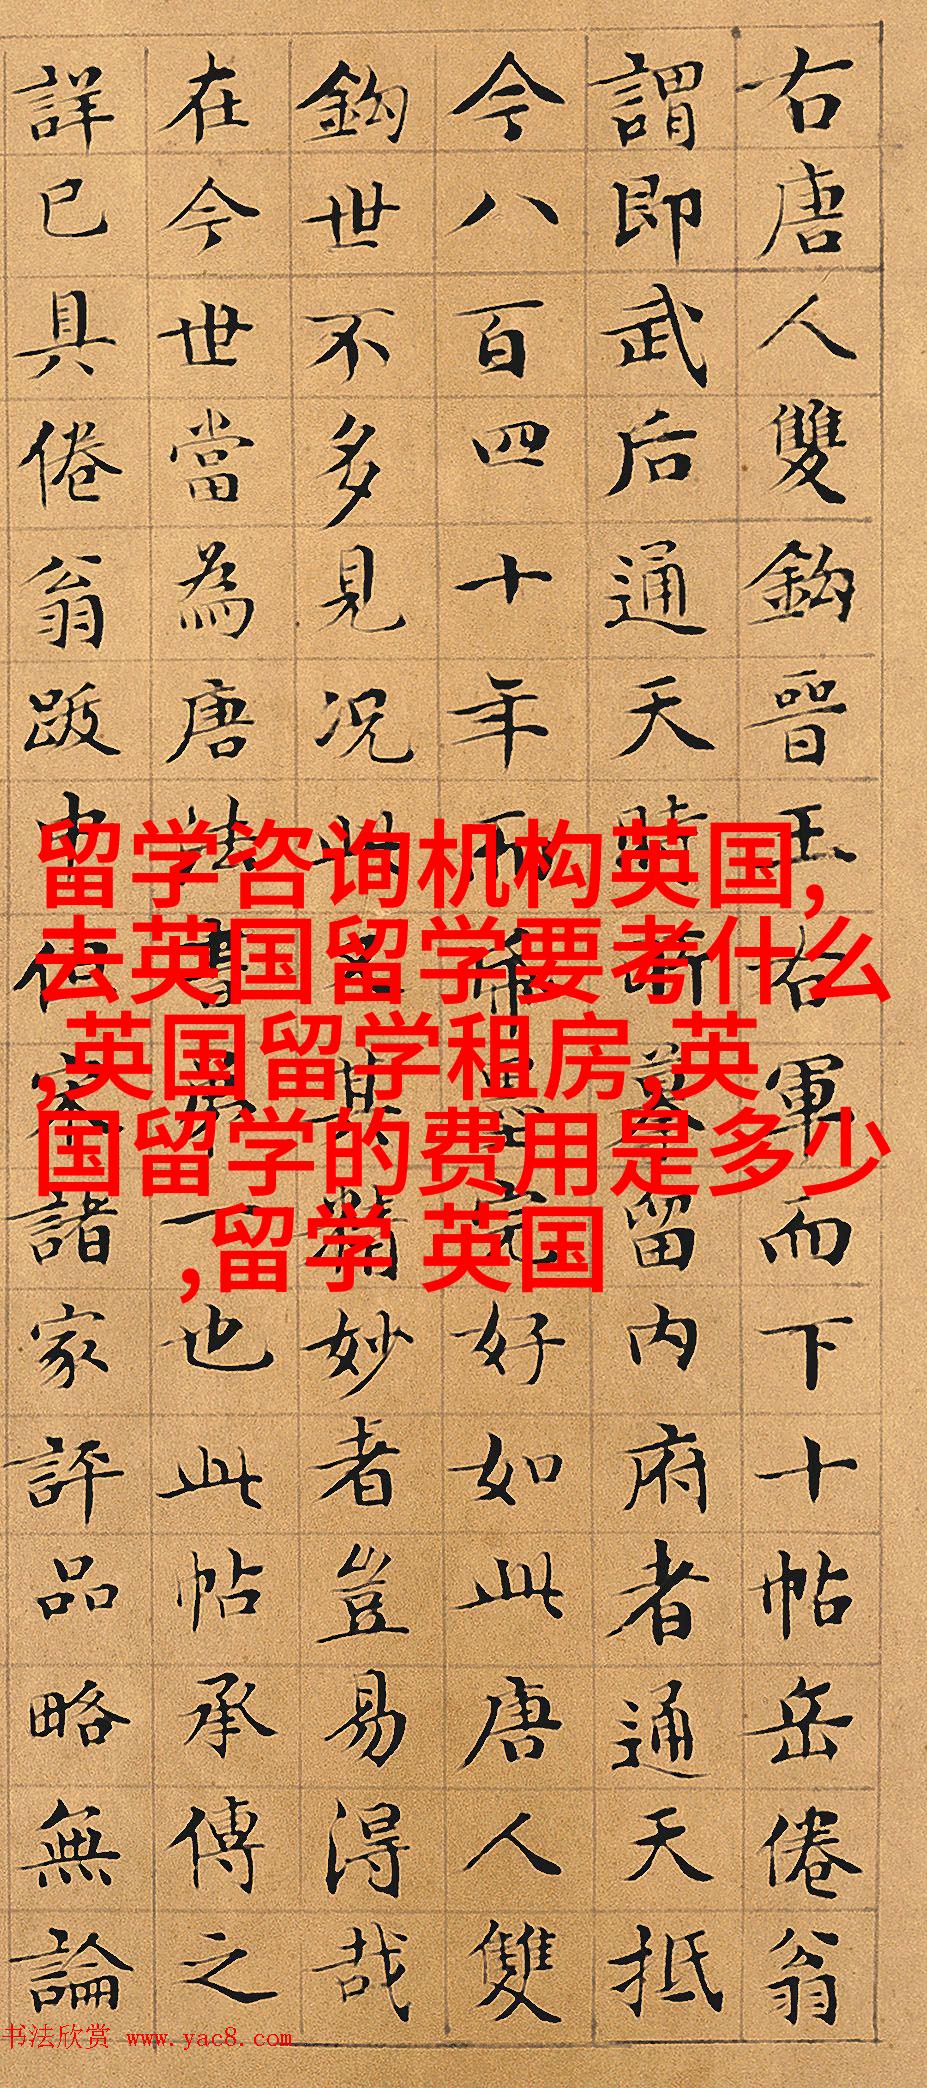 右唐人雙鈎晉王右軍而下十帖岳倦翁
謂即武后通天時所摹留內府者通天抵
今八百四十年而帋墨完好如此唐人雙
鈎世不多見况此又其精妙者豈易得哉
在今世當為唐法書第一也此帖承傳之
詳已具倦翁跋中他宋諸家評品略無論
留学咨询机构英国,
去英国留学要考什么
,英国留学租房,英
国留学的费用是多少
,留学 英国
书法欣赏 www.yac8.com